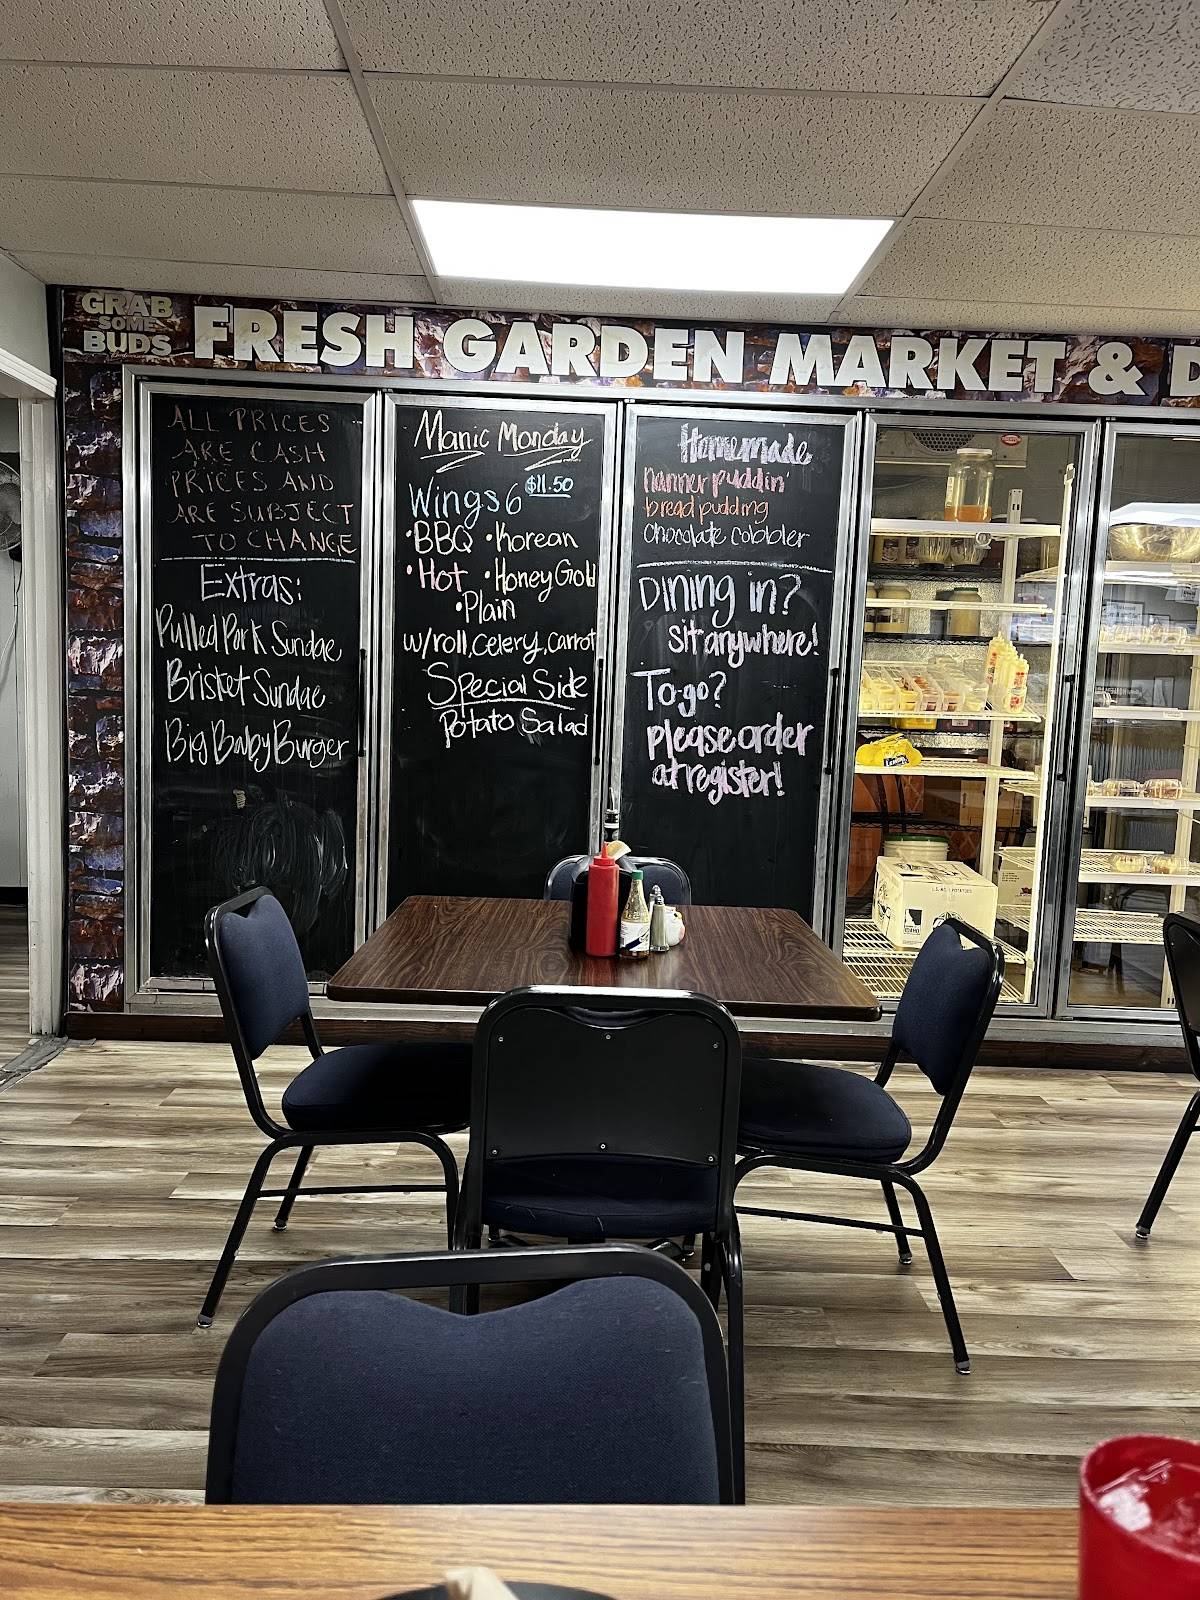 GRAB
SOME
BUDS
FRESH GARDEN MARKET & D
ALL PRICES
ARE CASH
PRICES AND
ARE SUBJECT
TO CHANGE
Extras:
Pulled Pork Sundae
Brisket Sundae
Big Baby Burger
Manic Monday
Wings 6 $11.50
•BBQ •Korean
•Hot •Honey Gold
•Plain
w/roll, celery, carrot
Special Side
Potato Salad
Homemade
nanner puddin'
bread pudding
chocolate cobbler
Dining in?
sit anywhere!
To-go?
please order
at register!